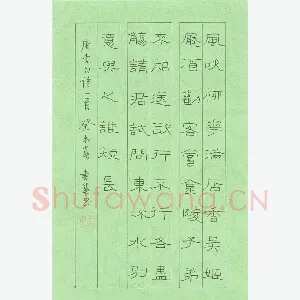 風吹柳花滿店香吳姬
壓酒勸客嘗金陵子弟
來相送欲行不行各盡
觴請君試問東流水別
意與之誰短長
唐李白詩一首 癸未
Shufawang.CN